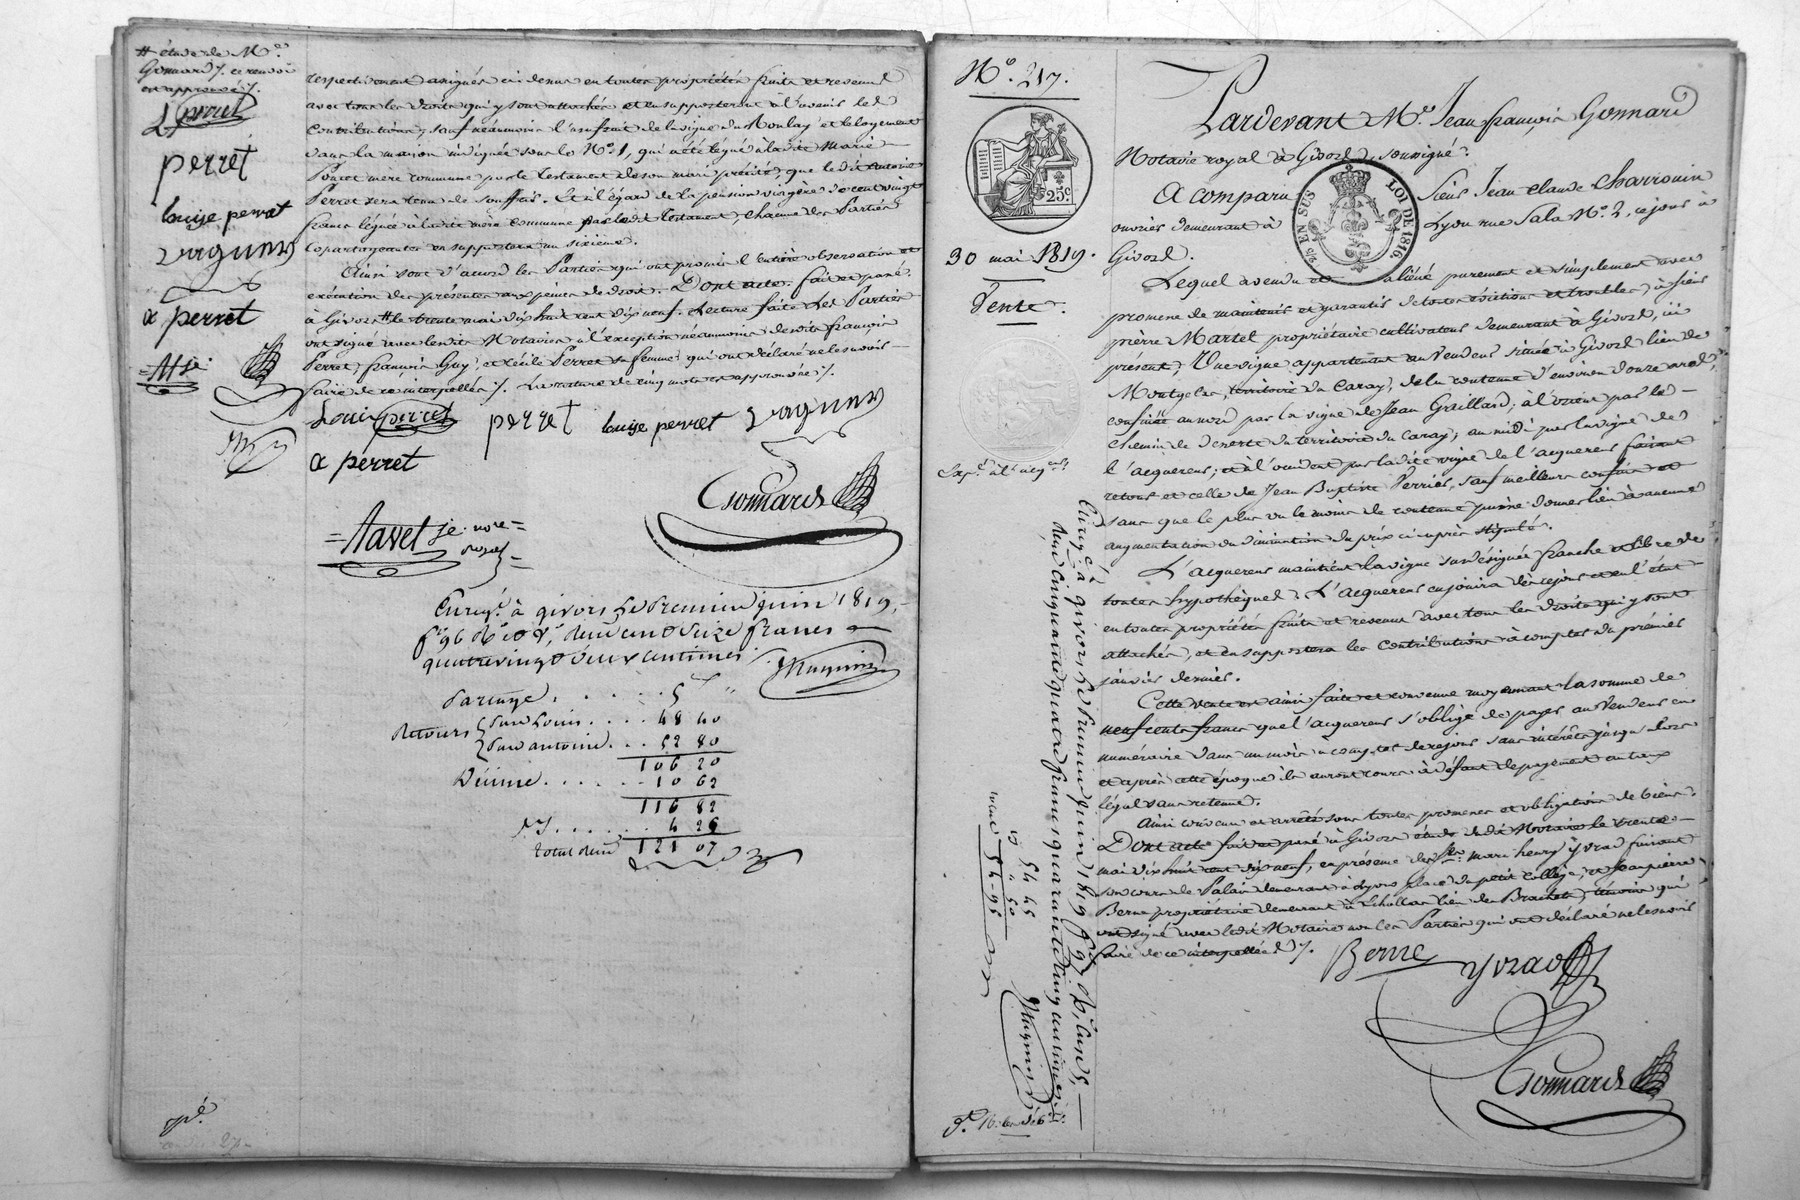 # étude de Mᵉ
Gonnard /. ce renvoi
est approuvé /.
L perret
perret
louise perret
vaganay
a perret
respectivement assignés ci dessus en toutes propriétés fruits et revenus
avec tous les droits qui y sont attachés et en supporteront à l'avenir les
contributions, sauf néanmoins l'usufruit de la vigne du Moulay et le logement
dans la maison indiquée sous le Nº 1, qui a été légué à la dite Marie
Poncet mere commune par le testament de son mari précité, que le dit Antoine
Perret sera tenu de souffrir. Et à l'égard de la pension viagère de cent vingt
francs léguée à la dite mère commune par le dit testament, chacune des Parties
copartageantes en supportera un sixième.
Ainsi sont d'accord les Parties qui ont promis l'entière observation et
exécution des présentes aux peines de droit. Dont acte. fait et passé
à Givors # le trente mai dix huit cent dix neuf. Lecture faite les Parties
ont signé avec les dits Notaires à l'exception néanmoins desdits françois
Perret, françois Guy, et Cécile Perret sa femme qui ont déclaré ne le savoir
faire de ce interpellés /. La rature de cinq mots est approuvée /.
Louis perret perret louise perret vaganay
a perret
Gonnard
Navet je. nore
royal
Enregé. à givors le Premier juin 1819,
fº 96 Rº et Vº, deux cent Seize francs
quatrevingt deux centimes.
Partage . . . . . 5 "
Retours { Sur Louis . . . . 48 40
{ Sur antoine . . . 52 80
106 20
Décime . . . . . . 10 62
116 82
4 25
total dû 121 07
Nº. 217.
25c.
30 mai 1819.
Vente.
Expé. à l'acqér.
Pardevant Mᵉ. Jean françois Gonnard
Notaire royal à Givors, soussigné.
A comparu Sieur Jean Claude Charrouin
ouvrier demeurant à Lyon rue Sala Nº. 2, ce jour à
Givors.
EN SUS
LOI DE 1816
Lequel a vendu et aliéné purement et simplement avec
promesse de maintenir et garantir de toutes évictions et troubles, à sieur
pierre Martel propriétaire cultivateur demeurant à Givors, ici
présent, Une vigne appartenant au Vendeur située à Givors lieu de
Montgelas, territoire du Caray, de la contenue d'environ douze ares,
confinée au nord par la vigne de Jean Graillard; à l'orient par le
chemin de desserte du territoire du Caray; au midi par la vigne de
l'acquereur; et à l'occident par la dite vigne de l'acquereur faisant
retour et celle de Jean Baptiste Verrier, sauf meilleurs confins et
sans que le plus ou le moins de contenue puisse donner lieu à aucune
augmentation ou diminution du prix ci après stipulé.
L'acquereur maintient la vigne sus désignée franche et libre de
toutes hypothèques. L'acquereur en jouira dès ce jour et en l'état
en toutes propriétés fruits et revenus avec tous les droits qui y sont
attachés, et en supportera les contributions à compter du premier
janvier dernier.
Cette vente est ainsi faite et convenue moyennant la somme de
neuf cents francs que l'acquereur s'oblige de payer au Vendeur en
numéraire dans un mois à compter de ce jour sans intérêts jusqu'alors
et après cette époque ils auront cours à défaut de payement au taux
légal sans retenue.
Ainsi convenu et arrêté sous toutes promesses et obligations de biens.
Dont acte fait et passé à Givors étude dudit Notaire le trente
mai dix huit cent dix neuf, en présence des Srs. marc henry yvrad suivant
son cours de Palais demeurant à Lyon place du petit college; et Jean pierre
Berne propriétaire demeurant à Echallas lieu des Brachets, témoins qui
ont signé avec ledit Notaire non les Parties qui ont déclaré ne le savoir
faire de ce interpellées /.
Berne yvrad
Gonnard
Enregé. à givors, le Premier juin 1819 fº 97 Rº, Cases 5,
Reçu Cinquante quatre francs quarante cinq centimes.
54 45
" 50
54 - 95